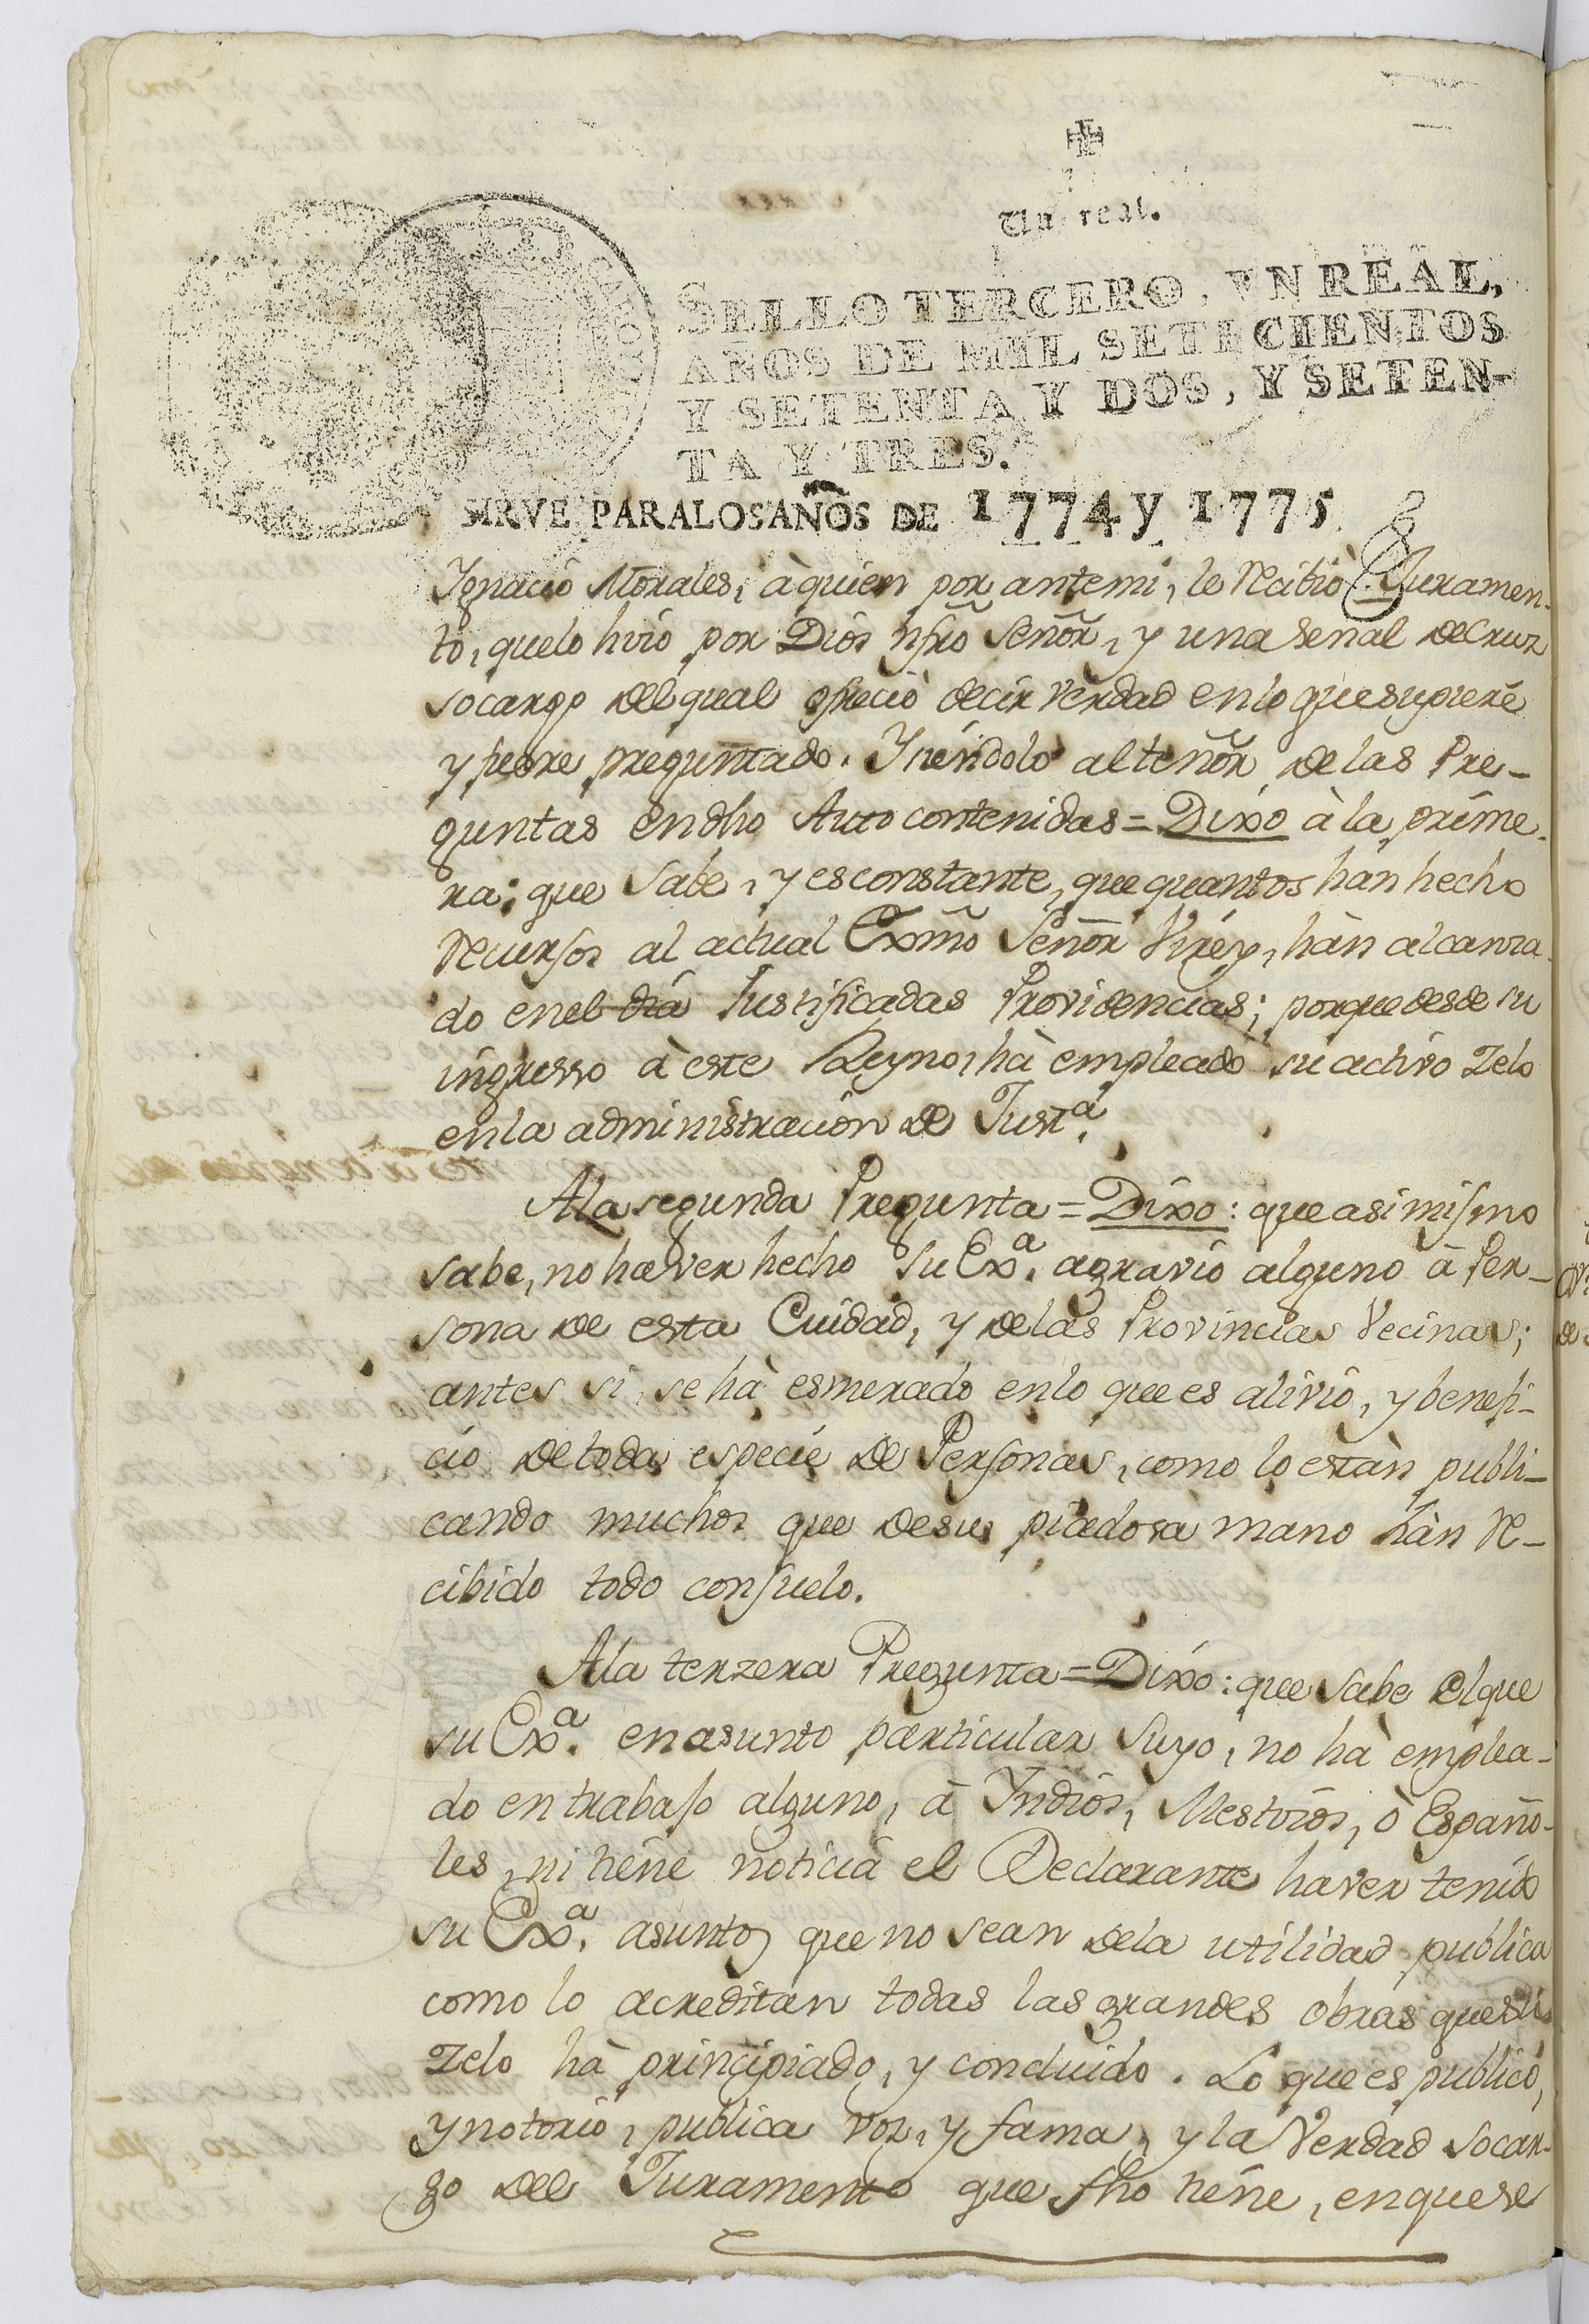 Un real.
SELLO TERCERO, VN REAL,
AÑOS DE MIL SETECIENTOS
Y SETENTA Y DOS, Y SETEN-
TA Y TRES.
SIRVE PARA LOS AÑOS DE 1774 y 1775
Ygnacio Morales, à quien por ante mi, le recibiò Juramen-
to, que lo hizo por Dios nrõ Señor, y una señal de Cruz
socargo del qual ofreciò decir verdad en lo que supiere
y fuere preguntado. Y siendolo al tenor de las Pre-
guntas en dho Auto contenidas = Dixo à la prime-
ra: que Sabe, y es constante, que quantos hàn hecho
recursos al actual Exmõ Señor Virèy, hàn alcanza-
do en el dia Justificadas Providencias; porque desde su
ingresso à este Reyno, hà empleado su activo Zelo
en la administracion de Justª.
A la segunda Pregunta = Dixo: que asi mismo
sabe, no haver hecho Su Exª. agravio alguno à Per-
sona de esta Ciudad, y de las Provincias Vecinas;
antes si, se hà esmerado en lo que es alivio, y benefi-
cio de toda especie de Personas, como lo estàn publi-
cando muchos que de su piadosa mano hàn re-
cibido todo consuelo.
A la terzera Pregunta = Dixo: que Sabe el que
su Exª. en asunto particular Suyo, no hà emplea-
do en trabajo alguno, à Yndios, Mestizos, ò Españo-
les, ni tiene noticia el Declarante haver tenido
su Exª. asuntos que no sean de la utilidad publica
como lo acreditan todas las grandes obras que su
Zelo hà principiado, y concluido. Lo que es publico,
y notorio, publica voz, y fama, y la Verdad Socar-
go del Juramento que fho tiene, en que se